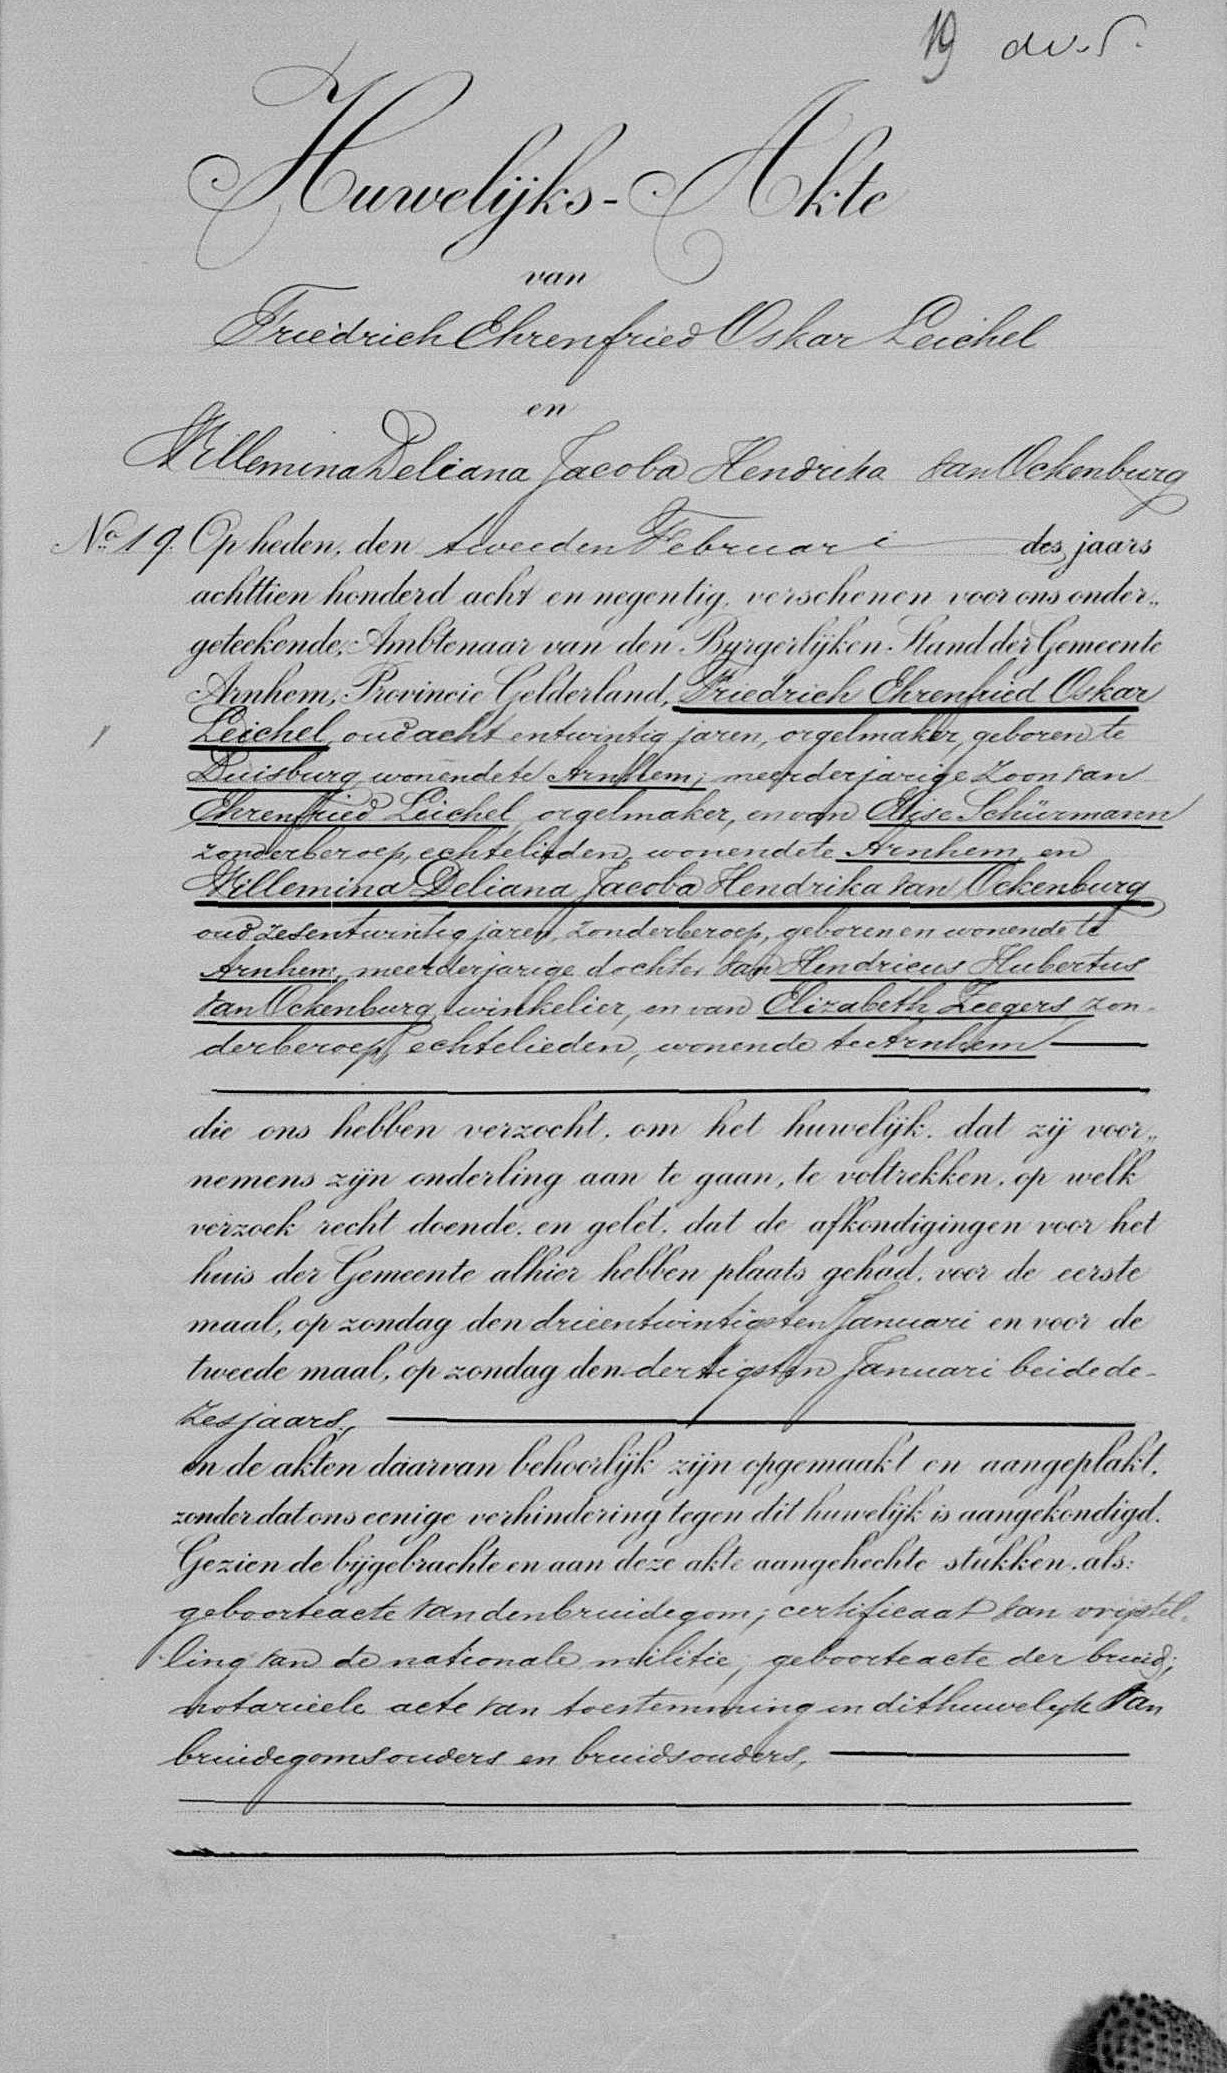 19
Huwelijks-Akte
van
Friedrich Ehrenfried Oskar Leichel
en
Willemina Deliana Jacoba Hendrika van Ockenburg
No. 19. Op heden, den tweeden Februari des jaars
achttien honderd acht en negentig, verschenen voor ons onder„
geteekende, Ambtenaar van den Burgerlijken Stand der Gemeente
Arnhem, Provincie Gelderland, Friedrich Ehrenfried Oskar
Leichel, oud acht entwintig jaren, orgelmaker, geboren te
Duisburg wonende te Arnhem; meerderjarige Zoon van
Ehrenfried Leichel, orgelmaker, en van Elise Schürmann
zonder beroep, echtelieden, wonende te Arnhem, en
Willemina Deliana Jacoba Hendrika van Ockenburg
oud zesentwintig jaren, zonder beroep, geboren en wonende te
Arnhem, meerderjarige dochter van Hendricus Hubertus
van Ockenburg, winkelier, en van Elizabeth Zeegers zon-
der beroep, echtelieden, wonende te Arnhem
die ons hebben verzocht, om het huwelijk, dat zij voor„
nemens zijn onderling aan te gaan, te voltrekken, op welk
verzoek recht doende, en gelet, dat de afkondigingen voor het
huis der Gemeente alhier hebben plaats gehad, voor de eerste
maal, op zondag den drieentwintigsten Januari en voor de
tweede maal, op zondag den dertigsten Januari beide de-
zes jaars,
en de akten daarvan behoorlijk zijn opgemaakt en aangeplakt,
zonder dat ons eenige verhindering tegen dit huwelijk is aangekondigd.
Gezien de bijgebrachte en aan deze akte aangehechte stukken, als:
geboorteacte van den bruidegom; certificaat van vrijstel-
ling van de nationale militie; geboorteacte der bruid;
notarieele acte van toestemming in dit huwelijk van
bruidegomsouders en bruidsouders,